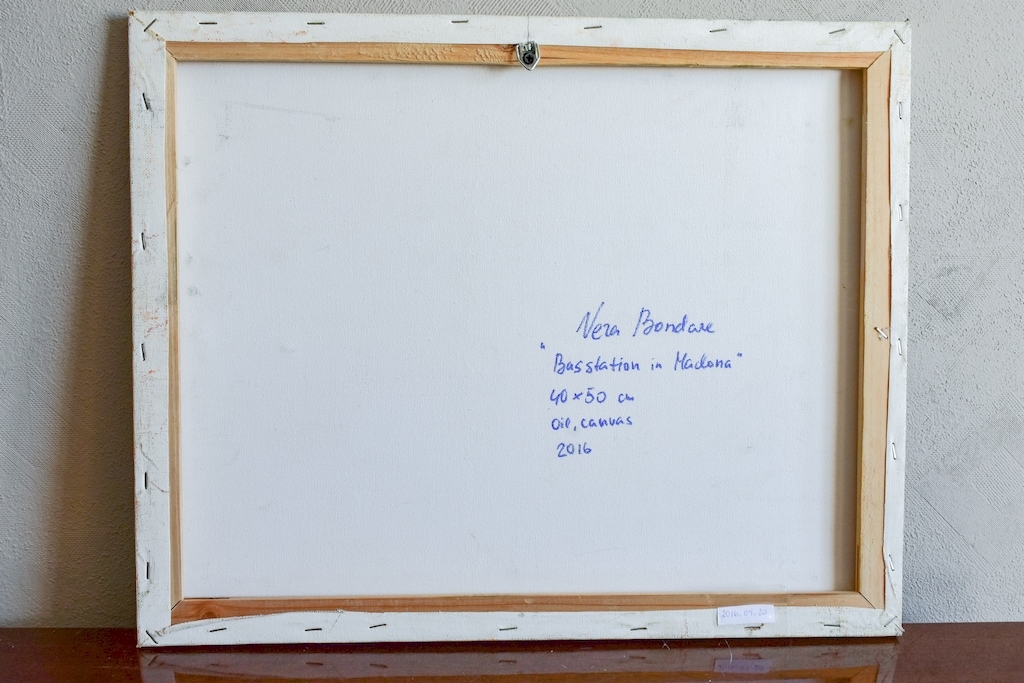 Vera Bondare
"Busstation in Madona"
40x50 cm
Oil, canvas
2016
2016.04.20